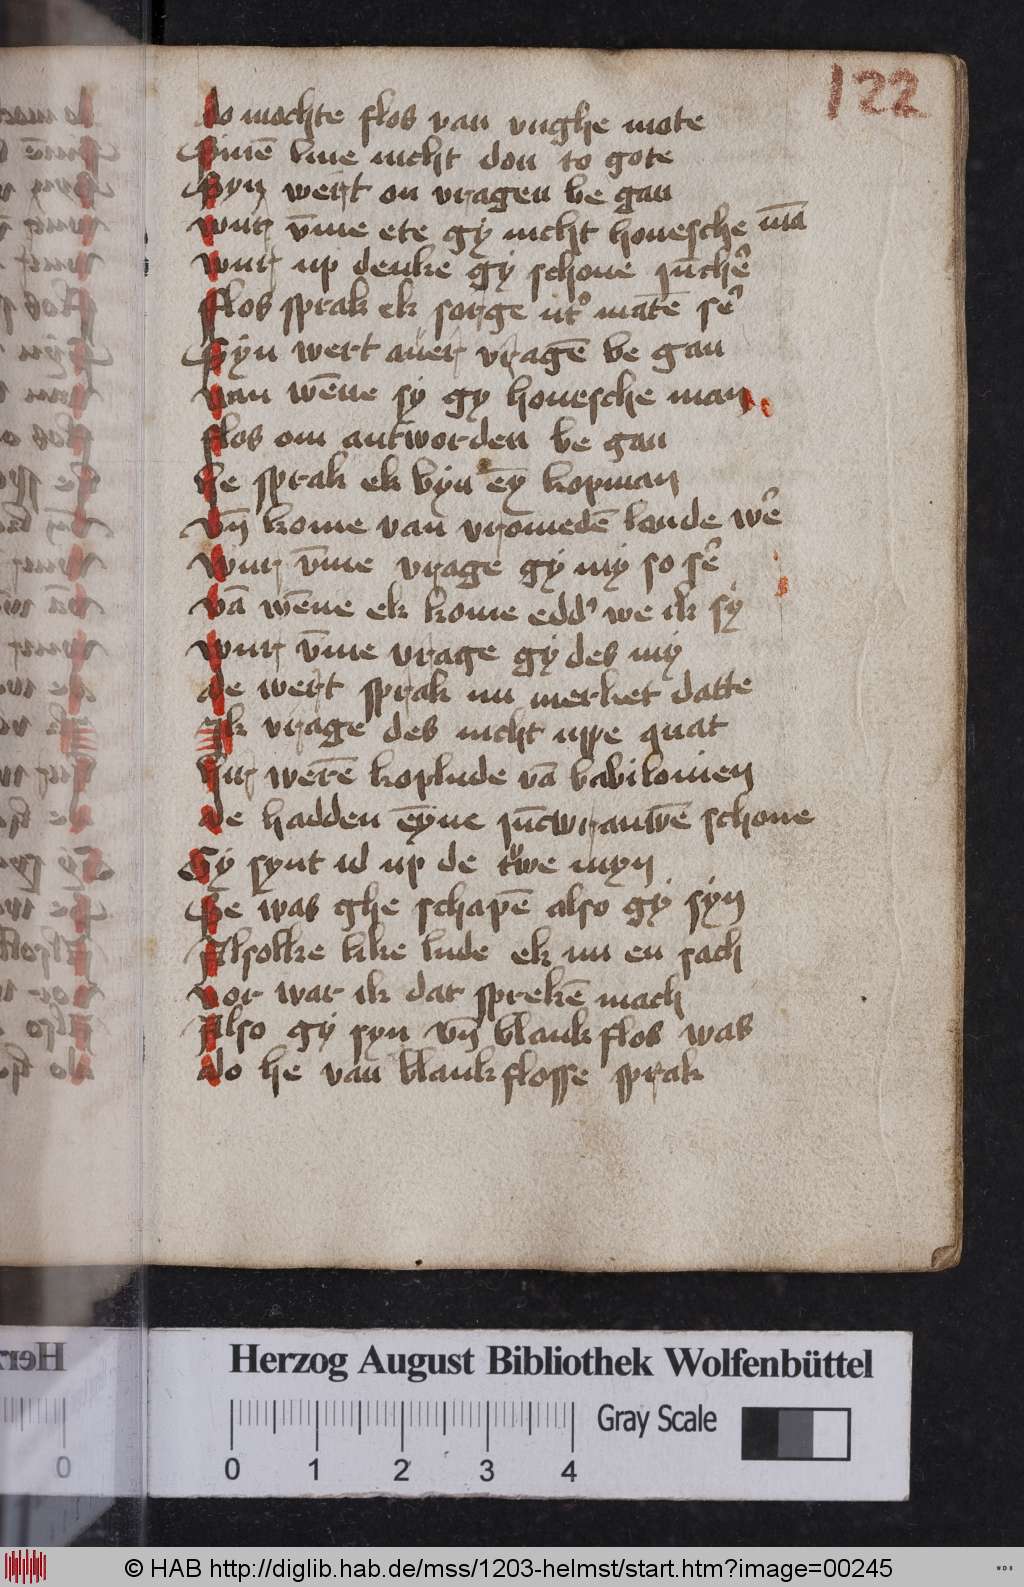 122
do mochte flos van vnghe mote
Sinē liue nicht don to gote
Syn wert on vragen be gan
wur v̄me ete gy nicht houesche mā
wur up denke gy schone iūchē
flos sprak ek sorge ut' matē sē
Syn wert auer vragē be gan
van wēne sy gy houesche man
flos om antworden be gan
he sprak ek byn ēy kopman
vn̄ kome van vromedē lande wē
wur v̄me vrage gy my so sē
vā wēne ek kome edd' we ik sy
wur v̄me vrage gy des my
de wert sprak nu merket datte
Ik vrage des nicht uppe quat
hir werē koplude vā babilonien
de hadden ēyne iūcwrauwē schone
Sy synt id up de twe myn
Se was ghe schapē also gy syn
Alsolke like lude ek nu en sach
vor war ik dat sprekē mach
Also gy syn vn̄ blankflos was
do he van blankflosse sprak
Herzog August Bibliothek Wolfenbüttel
Gray Scale
0 1 2 3 4
© HAB http://diglib.hab.de/mss/1203-helmst/start.htm?image=00245